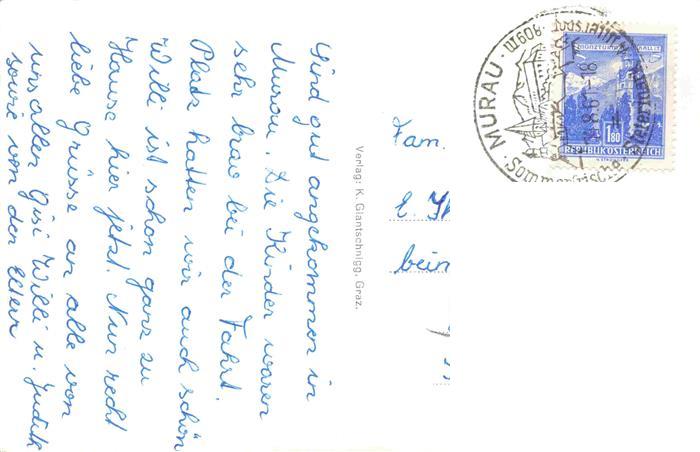 Sind gut angekommen in
Murau. Die Kinder waren
sehr brav bei der Fahrt.
Platz hatten wir auch schön
Willi ist schon ganz zu
Hause hier jetzt. Nun recht
liebe Grüsse an alle von
uns allen Gisi Willi u. Judith
sowie von den Eltern
Verlag: K. Glantschnigg, Graz.
Fam.
bein
MURAU
Sommerfrische
1·80
REPUBLIK ÖSTERREICH